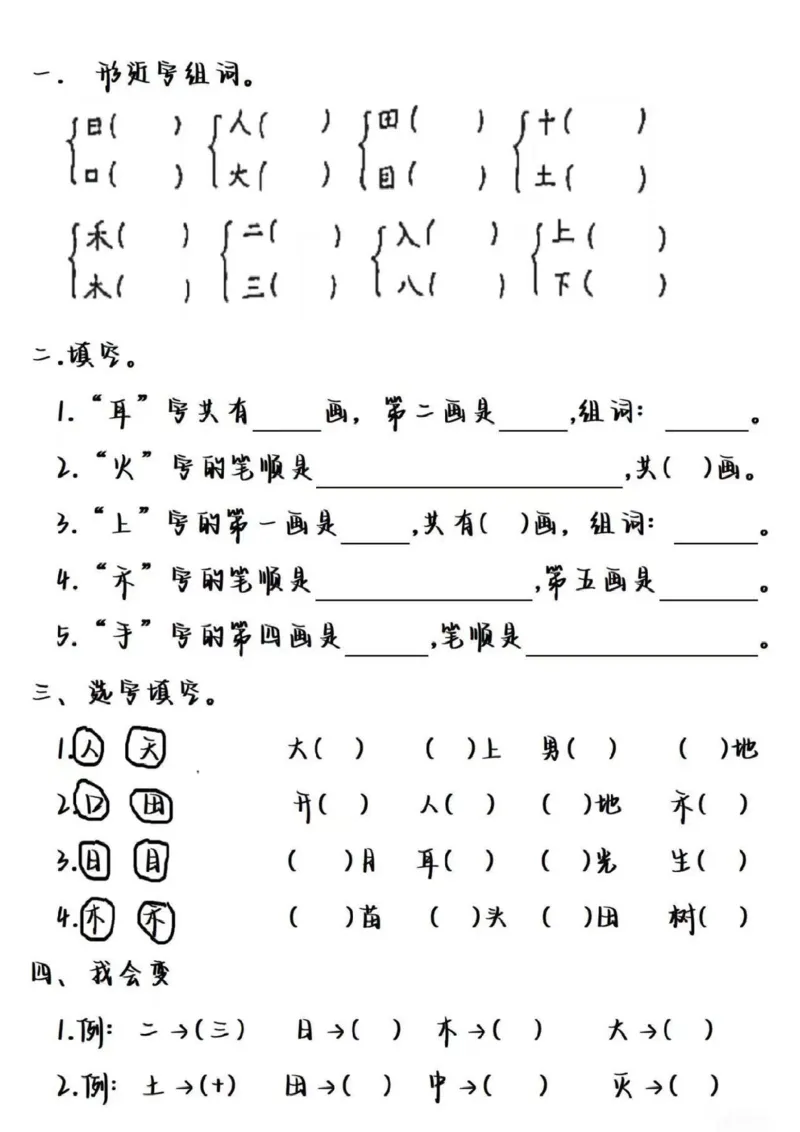 一. 形近字组词。
日( ) 人( ) 田( ) 十( )
口( ) 大( ) 目( ) 土( )
禾( ) 二( ) 入( ) 上( )
木( ) 三( ) 八( ) 下( )
二.填空。
1.“耳”字共有____画，第二画是____,组词：_____。
2.“火”字的笔顺是__________________,共( )画。
3.“上”字的第一画是____,共有( )画，组词：_____。
4.“禾”字的笔顺是_____________,第五画是______。
5.“手”字的第四画是_____,笔顺是______________。
三、选字填空。
1.人 天 大( ) ( )上 男( ) ( )地
2.口 田 开( ) 人( ) ( )地 禾( )
3.日 目 ( )月 耳( ) ( )光 生( )
4.木 禾 ( )苗 ( )头 ( )田 树( )
四、我会变
1.例：二→(三) 日→( ) 木→( ) 大→( )
2.例：土→(十) 田→( ) 中→( ) 灭→( )